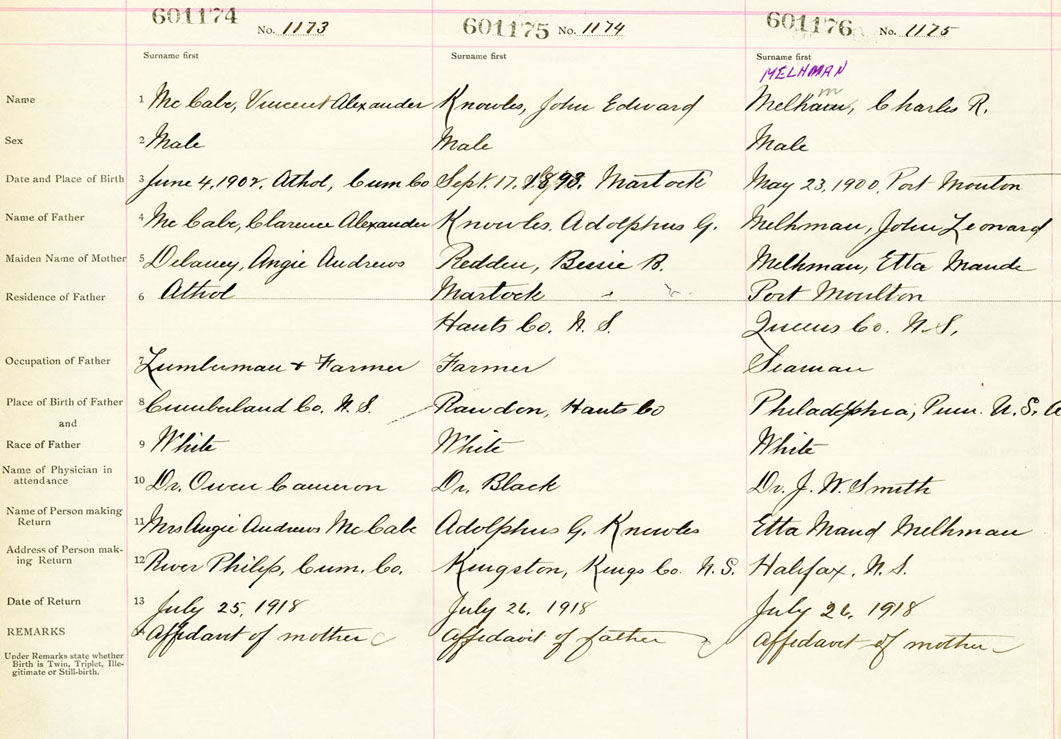 601174 No. 1173 601175 No. 1174 601176 No. 1175
Surname first Surname first Surname first
MELHMAN
Name 1 McCabe, Vincent Alexander Knowles, John Edward Melham, Charles R.
m
Sex 2 Male Male Male
Date and Place of Birth 3 June 4, 1902, Athol, Cum Co Sept. 17, 1893. Martock May 23, 1900, Port Mouton
Name of Father 4 McCabe, Clarence Alexander Knowles, Adolphus G. Melhman, John Leonard
Maiden Name of Mother 5 Delaney, Angie Andrews Redden, Bessie B. Melhman, Etta Maude
Residence of Father 6 Athol Martock Port Moulton
Hants Co. N.S. Queens Co. N.S.
Occupation of Father 7 Lumberman + Farmer Farmer Seaman
Place of Birth of Father 8 Cumberland Co. N.S. Rawdon, Hants Co Philadelphia, Penn. U.S. A
and
Race of Father 9 White White White
Name of Physician in
attendance 10 Dr. Owen Cameron Dr. Black Dr. J. W. Smith
Name of Person making
Return 11 Mrs Angie Andrews McCabe Adolphus G. Knowles Etta Maud Melhman
Address of Person mak-
ing Return 12 River Philip, Cum. Co. Kingston, Kings Co. N.S. Halifax, N.S.
Date of Return 13 July 25, 1918 July 26, 1918 July 26, 1918
REMARKS Affidavit of mother Affidavit of father Affidavit of mother
Under Remarks state whether
Birth is Twin, Triplet, Ille-
gitimate or Still-birth.